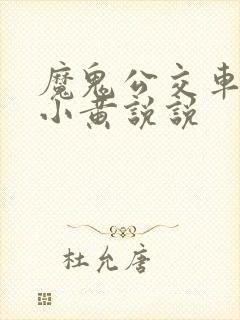 魔鬼公交车
小黄説説
杜允唐